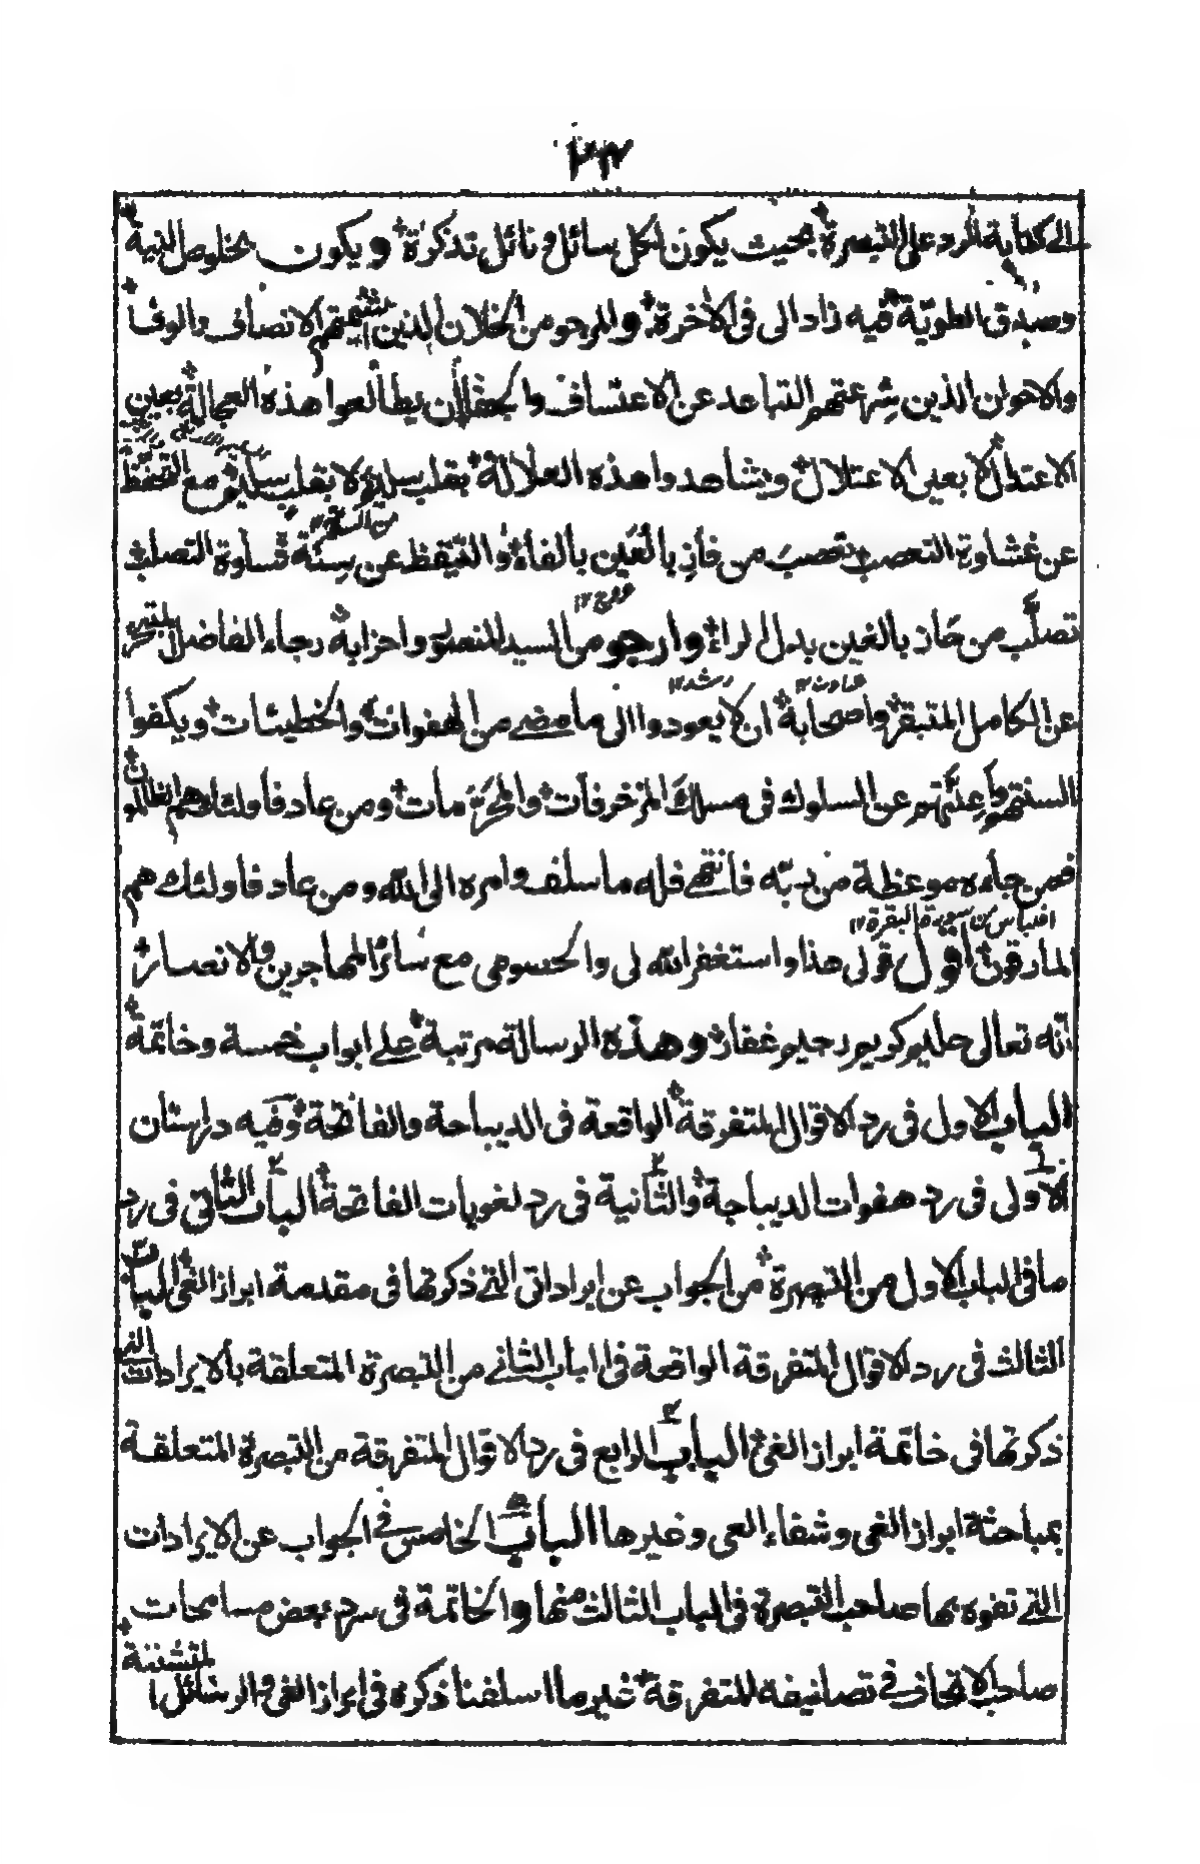 ٢٣
الى كتابة الرد على التبصرة بحيث يكون لكل سائل ونائل تذكرة ويكون بخلوص النية
وصدق الطوية فيه زاد الى فى الأخرة والمرجو من الخلان الذين شيمتهم الانصاف والوفا
والاخوان الذين شرعتهم التباعد عن الاعتساف والجفا أن يطالعوا هذه العجالة بعين
الاعتدال لا بعين الاعتلال ويشاهدوا هذه العلالة بقلب سليم لا بقلب سليم مع التحفظ
عن غشاوة التعصب تعصب من فاز بالغين بالفاء والتيقظ عن سنة قساوة التصلب
من السلامة ١٢
تصلّب من حاز بالغين بدل الراء وارجو من السيد المنصور واحزابه رجاء الفاضل المتبحر
عن الكامل المتبقر واصحابه ان لا يعودوا الى ما مضى من الهفوات والخطيئات ويكفوا
السنتهم وأعنتهم عن السلوك فى مسلك المزخرفات والمحرمات ومن عاد فأولئك هم الظالمون
فمن جاءه موعظة من ربّه فانتهى فله ما سلف وامره الى الله ومن عاد فاولئك هم
اقتباس من سورة البقرة ١٢
المارقون أقول قولى هذا واستغفر الله لى والخصومى مع سائر المهاجرين والانصار
انّه تعالى حليم كريم رحيم غفار وهذه الرسالة مرتبة على ابواب خمسة وخاتمة
الباب الاول فى رد الاقوال المتفرقة الواقعة فى الديباجة والفاتحة وفيه دراستان
الاولى فى رد هفوات الديباجة والثانية فى رد لغويات الفاتحة الباب الثانى فى رد
ما فى الباب الاول من التبصرة من الجواب عن ايراداتى التى ذكرتها فى مقدمة ابراز الغى الباب
الثالث فى رد الاقوال المتفرقة الواقعة فى الباب الثانى من التبصرة المتعلقة بالايرادات التى
ذكرتها فى خاتمة ابراز الغى الباب الرابع فى رد الاقوال المتفرقة من التبصرة المتعلقة
بمباحثة ابراز الغى وشفاء العى وغيرها الباب الخامس فى الجواب عن الايرادات
التى تفوه بها صاحب التبصرة فى الباب الثالث منها والخاتمة فى سرد بعض مسامحات
صاحب الاتحاف فى تصانيفه المتفرقة غير ما اسلفنا ذكره فى ابراز الغى والرسائل المتشتتة